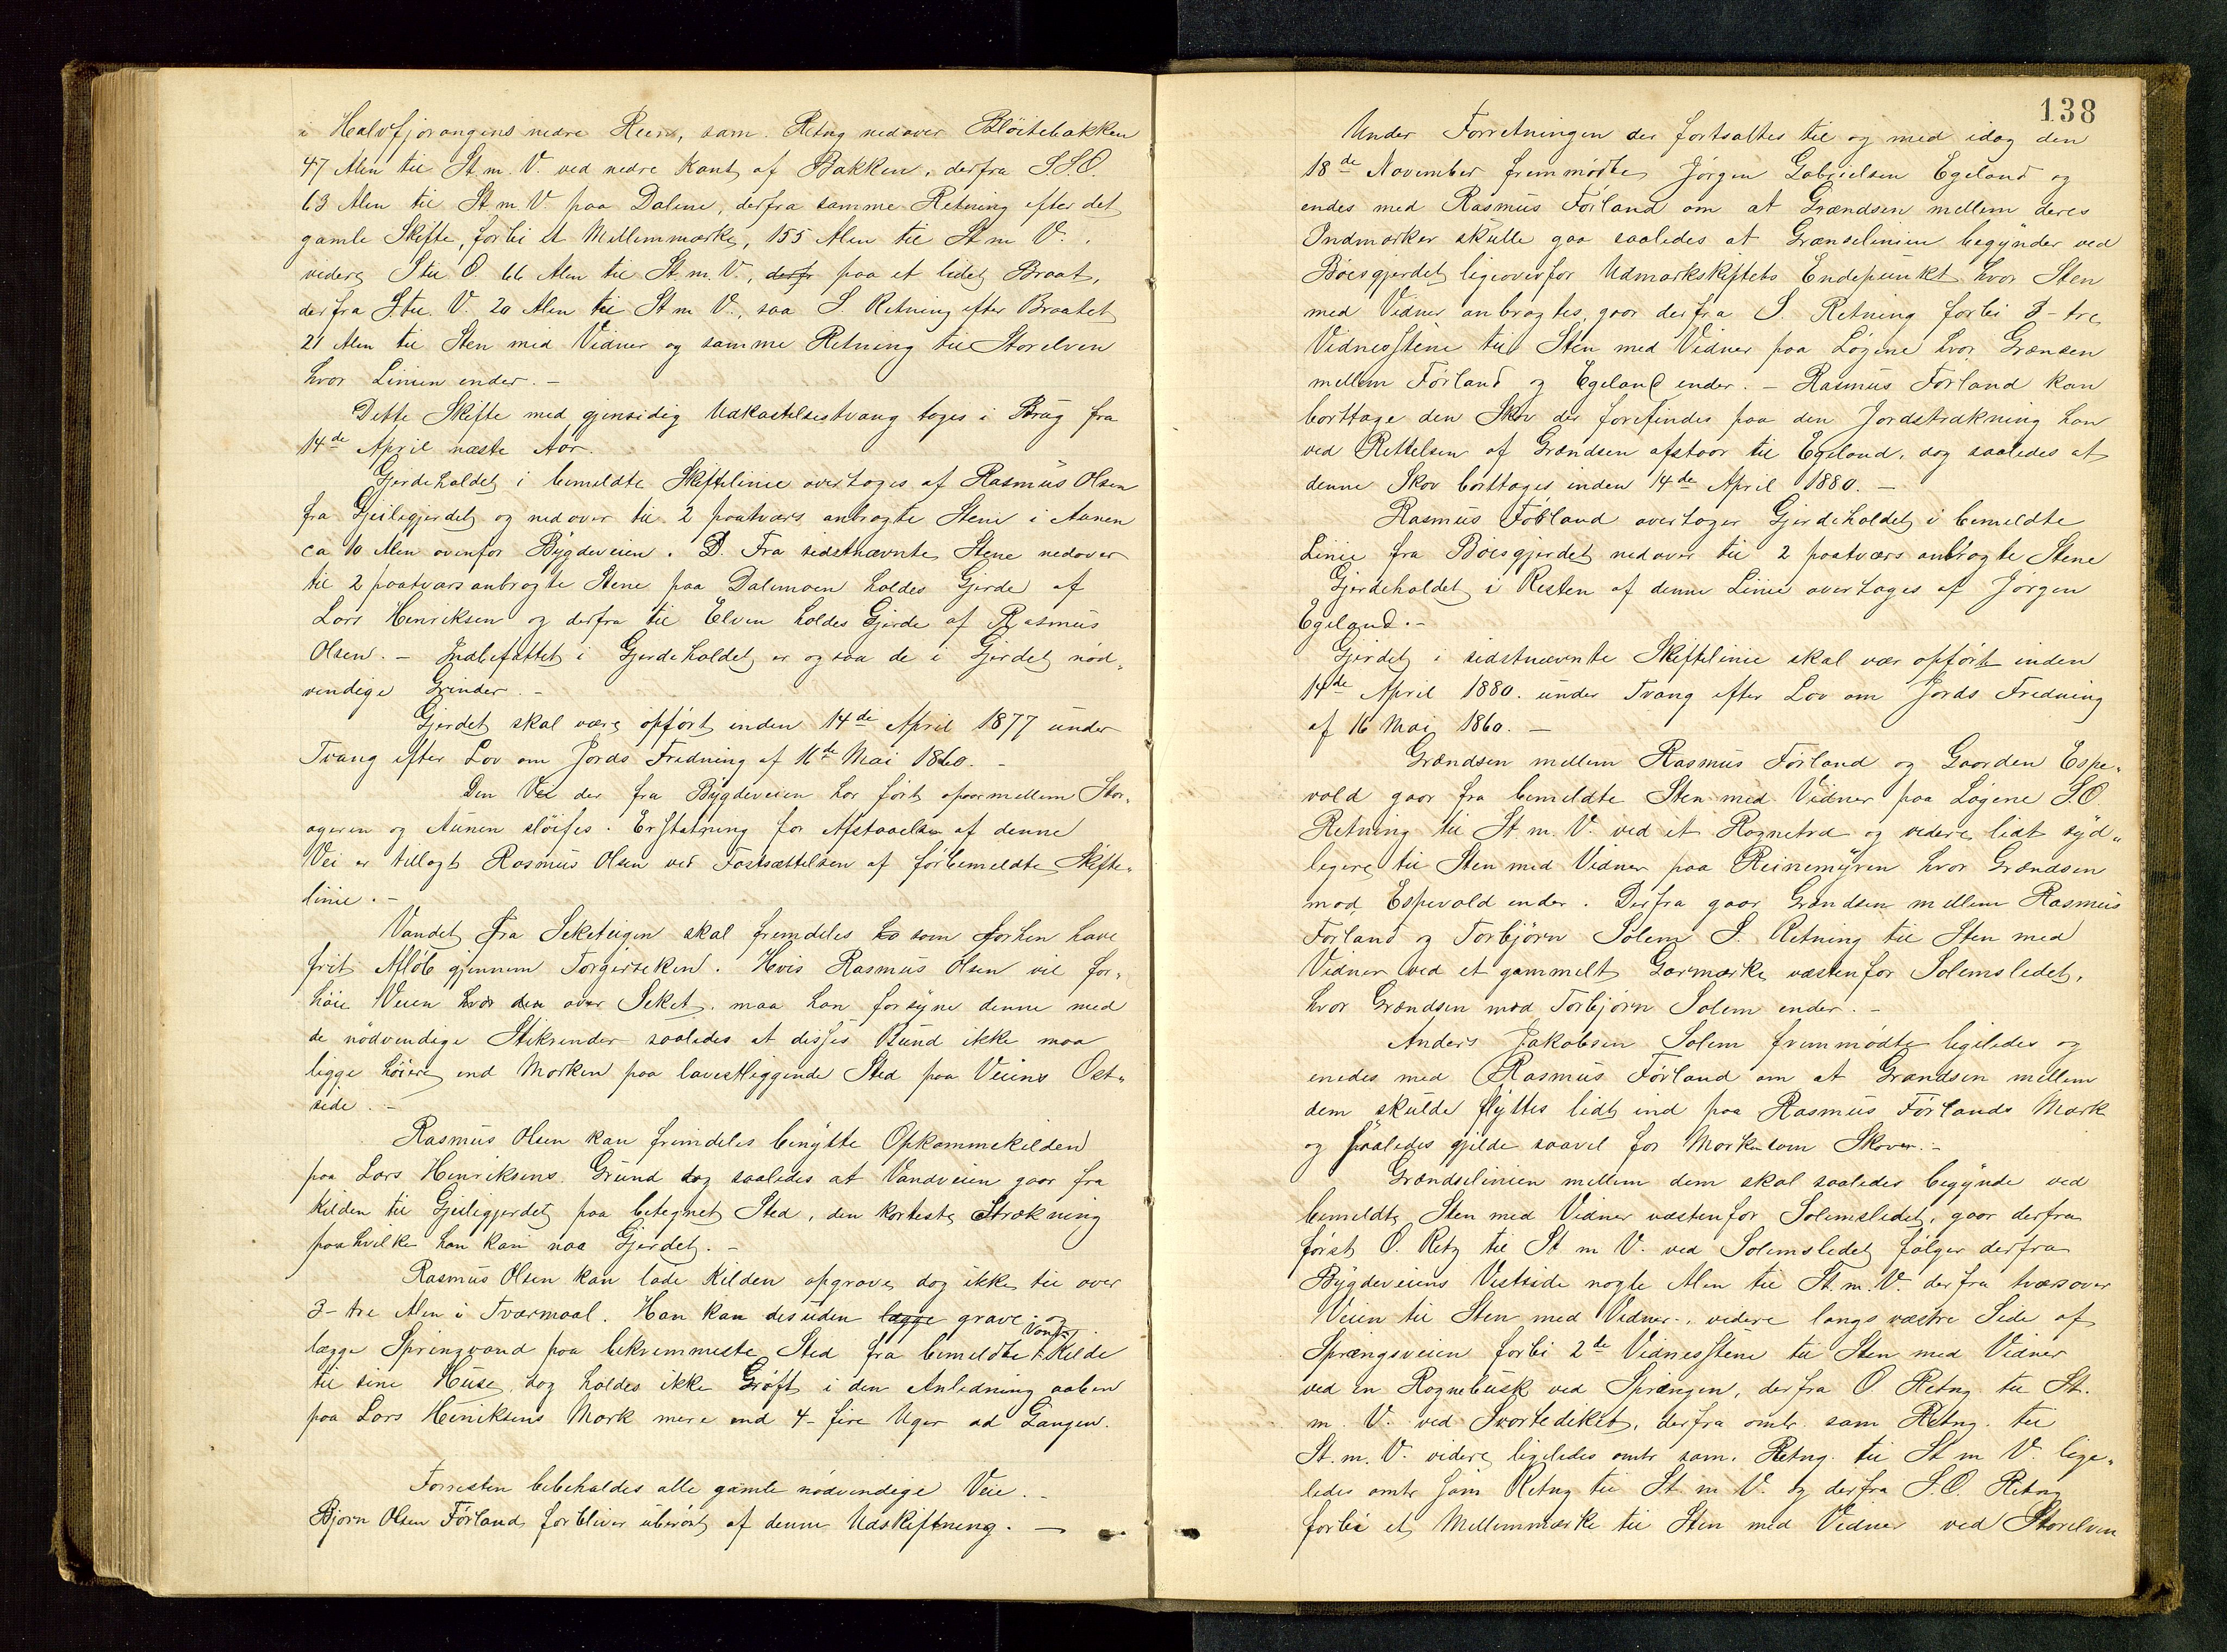 i Halvfjorangens nedre Reen, sam. Retng nedover Blöitebakken
47 Alen til St. m. V. ved nedre Kant af Bakken, derfra S.S.O.
63 Alen til St. m. V. paa Dalene, derfra samme Retning efter det
gamle Skifte, forbi et Mellemmærke, 155 Alen til St m V.
videre S til O. 66 Alen til St. m. V., derfr paa et lidet Braat,
derfra S. til V. 20 Alen til St m V., saa S. Retning efter Braatet
21 Alen til Sten med Vidner og samme Retning til Storelven
hvor Linien ender. –
Dette Skifte med gjensidig Udkastelsestvang toges i Brug fra
14de April næste Aar.
Gjerdeholdet i bemeldte Skiftelinie overtoges af Rasmus Olsen
fra Gjeilegjerdet og nedover til 2 paatværs anbragte Stene i Aunen
ca 10 Alen ovenfor Bygdeveien. D. Fra sidstnævnte Stene nedover
til 2 paatværs anbragte Stene paa Dalemoen holdes Gjerde af
Lars Henriksen og derfra til Elven holdes Gjerde af Rasmus
Olsen. – Indbefattet i Gjerdeholdet er ogsaa de i Gjerdet nød„
vendige Grinder. –
Gjerdet skal være opført inden 14de April 1877 under
Tvang efter Lov om Jords Fredning af 16de Mai 1860. –
Den Vei der fra Bygdeveien har ført opaar mellem Stor„
ageren og Aunen sløifes. Erstatning for Afstaaelsen af denne
Vei er tillagt Rasmus Olsen ved Fastsættelsen af førbemeldte Skifte„
linie. –
Vandet fra Seketeigen skal fremdeles ha som forhen have
frit Afløb gjennem Torgerseken. Hvis Rasmus Olsen vil for„
høie Veien hvor den over Seket, maa han forsyne denne med
de nødvendige Stikrender saaledes at disses Bund ikke maa
ligge høiere end Marken paa lavestliggende Sted paa Veiens Øst„
side. –
Rasmus Olsen kan fremdeles benytte Opkommekilden
paa Lars Henriksens Grund dog saaledes at Vandveien gaar fra
Kilden til Gjeiligjerdet paa betegnet Sted, den korteste Strækning
paa hvilke han kan naa Gjerdet. –
Rasmus Olsen kan lade Kilden opgrave, dog ikke til over
3– tre Alen i Tværmaal. Han kan desuden lægge grave og
lægge Springvand paa bekvemmeste Sted fra bemeldte Vand Kilde
til sine Huse, dog holdes ikke Grøft i den Anledning aaben
paa Lars Henriksens Mark mere end 4– fire Uger ad Gangen.
Forresten bibeholdes alle gamle nødvendige Veie. –
Bjørn Olsen Førland forbliver uberørt af denne Udskiftning. –
138
Under Forretningen der fortsattes til og med idag den
18de November fremmødte Jørgen Gabrielsen Egeland og
endes med Rasmus Førland om at Grændsen mellem deres
Indmarker skulle gaa saaledes at Grænselinien begynder ved
Bøesgjerdet ligeoverfor Udmarkskiftets Endepunkt hvor Sten
med Vidner anbragtes, gaar derfra S. Retning forbi 3– tre
Vidnesstene til Sten med Vidner paa Løgene hvor Grænsen
mellem Førland og Egeland ender. – Rasmus Førland kan
borttage den Skov der forefindes paa den Jordstrækning han
ved Rettelsen af Grændsen afstaar til Egeland, dog saaledes at
denne Skov borttages inden 14de April 1880. –
Rasmus Førland overtager Gjerdeholdet i bemeldte
Linie fra Bøesgjerdet nedover til 2 paatværs anbragte Stene
Gjerdeholdet i Resten af denne Linie overtages af Jørgen
Egeland. –
Gjerdet i sidstnævnte Skiftelinie skal vær opført inden
14de April 1880. under Tvang efter Lov om Jords Fredning
af 16 Mai 1860. –
Grændsen mellem Rasmus Førland og Gaarden Espe„
vold gaar fra bemeldte Sten med Vidner paa Løgene S.O.
Retning til St m. V. ved et Rognetræ og videre lidt syd„
ligere til Sten med Vidner paa Reinemyren hvor Grændsen
mod Espevold ender. Derfra gaar Grændsen mellem Rasmus
Førland og Torbjørn Solem S. Retning til Sten med
Vidner ved et gammelt Garmærke væstenfor Solemsledet,
hvor Grændsen mod Torbjørn Solem ender. –
Anders Jakobsen Solem fremmødte ligeledes og
enedes med Rasmus Førland om at Grændsen mellem
dem skulde flyttes lidt ind paa Rasmus Førlands Mark
og saaledes gjelde saavel for Marken som Skoven. –
Grændselinien mellem dem skal saaledes begynde ved
bemeldte Sten med Vidner væstenfor Solemsledet, gaar derfra
først O. Retg til St m V. ved Solemsledet følger derfra
Bygdeveiens Vestside nogle Alen til St. m. V. derfra tværsover
Veien til Sten med Vidner, videre langs væstre Side af
Sprængsveien forbi 2de Vidnesstene til Sten med Vidner
ved en Rognebusk ved Sprængen, derfra O. Retng til St.
m. V. ved Svortediket, derfra omtr sam Retng. til
St. m. V. videre ligeledes omtr sam. Retng. til St m V. lige„
ledes omtr sam Retng til St m V. og derfra S.O. Retng
forbi et Mellemmærke til Sten med Vidner ved Storelven